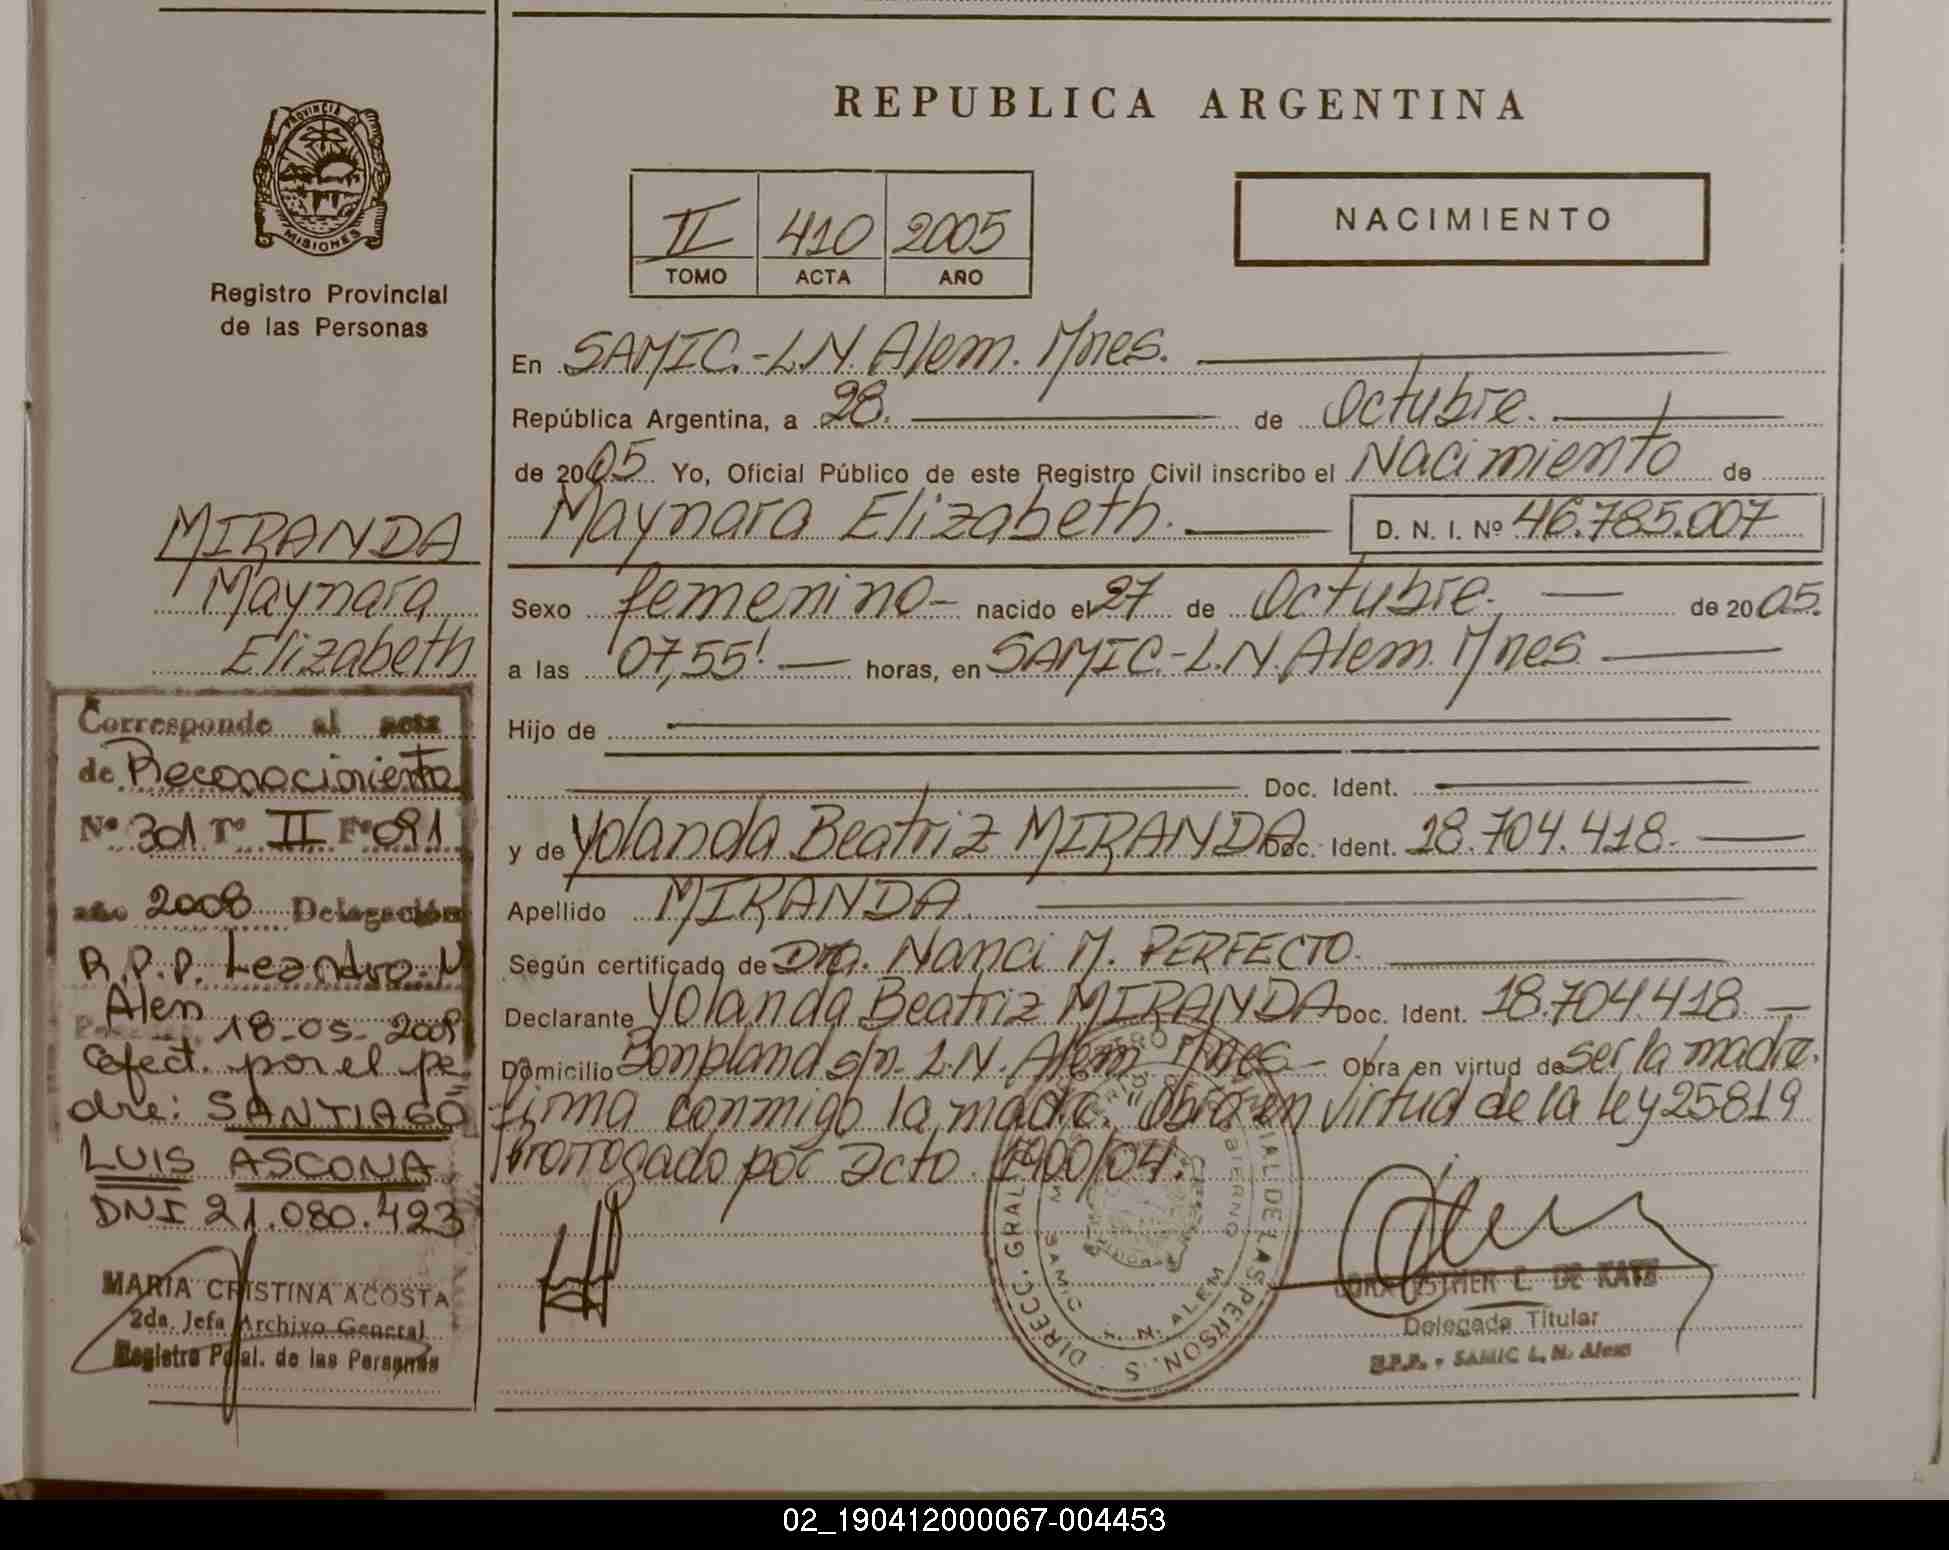 PROVINCIA DE
MISIONES
Registro Provincial
de las Personas
MIRANDA
Maynara
Elizabeth
Corresponde al acta
de Reconocimiento
Nº 301 Tº II Fº 091
año 2008 Delegación
R.P.P. Leandro. N
Alem
18-05-2008
efect. por el pa
dre: SANTIAGO
LUIS ASCONA
DNI 21.080.423
MARIA CRISTINA ACOSTA
2da. Jefa Archivo General
Registro Pcial. de las Personas
REPUBLICA ARGENTINA
II 410 2005
TOMO ACTA AÑO
NACIMIENTO
En SAMIC.-L.N. Alem. Mnes.
República Argentina, a 28. de Octubre.
de 2005 Yo, Oficial Público de este Registro Civil inscribo el Nacimiento de
Maynara Elizabeth. D. N. I. Nº 46.785.007
Sexo femenino- nacido el 27 de Octubre. de 2005.
a las 07,55' horas, en SAMIC.-L.N. Alem. Mnes
Hijo de
Doc. Ident.
y de Yolanda Beatriz MIRANDA Doc. Ident. 18.704.418.
Apellido MIRANDA
Según certificado de Dra. Nanci M. PERFECTO.
Declarante Yolanda Beatriz MIRANDA Doc. Ident. 18.704.418
Domicilio Bonpland s/n. L.N. Alem Mnes - Obra en virtud de ser la madre.
firma conmigo la madre. "Obra en virtud de la ley 25819
Prorrogado por dcto. 1900/04.
DIRECC. GRAL. DE LAS PERSON.S
SAMIC L. N. ALEM
ESTHER L. DE KATZ
Delegada Titular
R.P.P. - SAMIC L. N. Alem
02_190412000067-004453